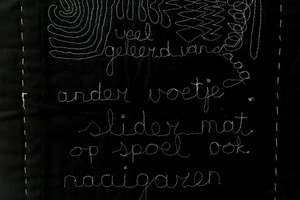 veel
geleerd vandaag
ander voetje
slider mat
op spoel ook
naaigaren